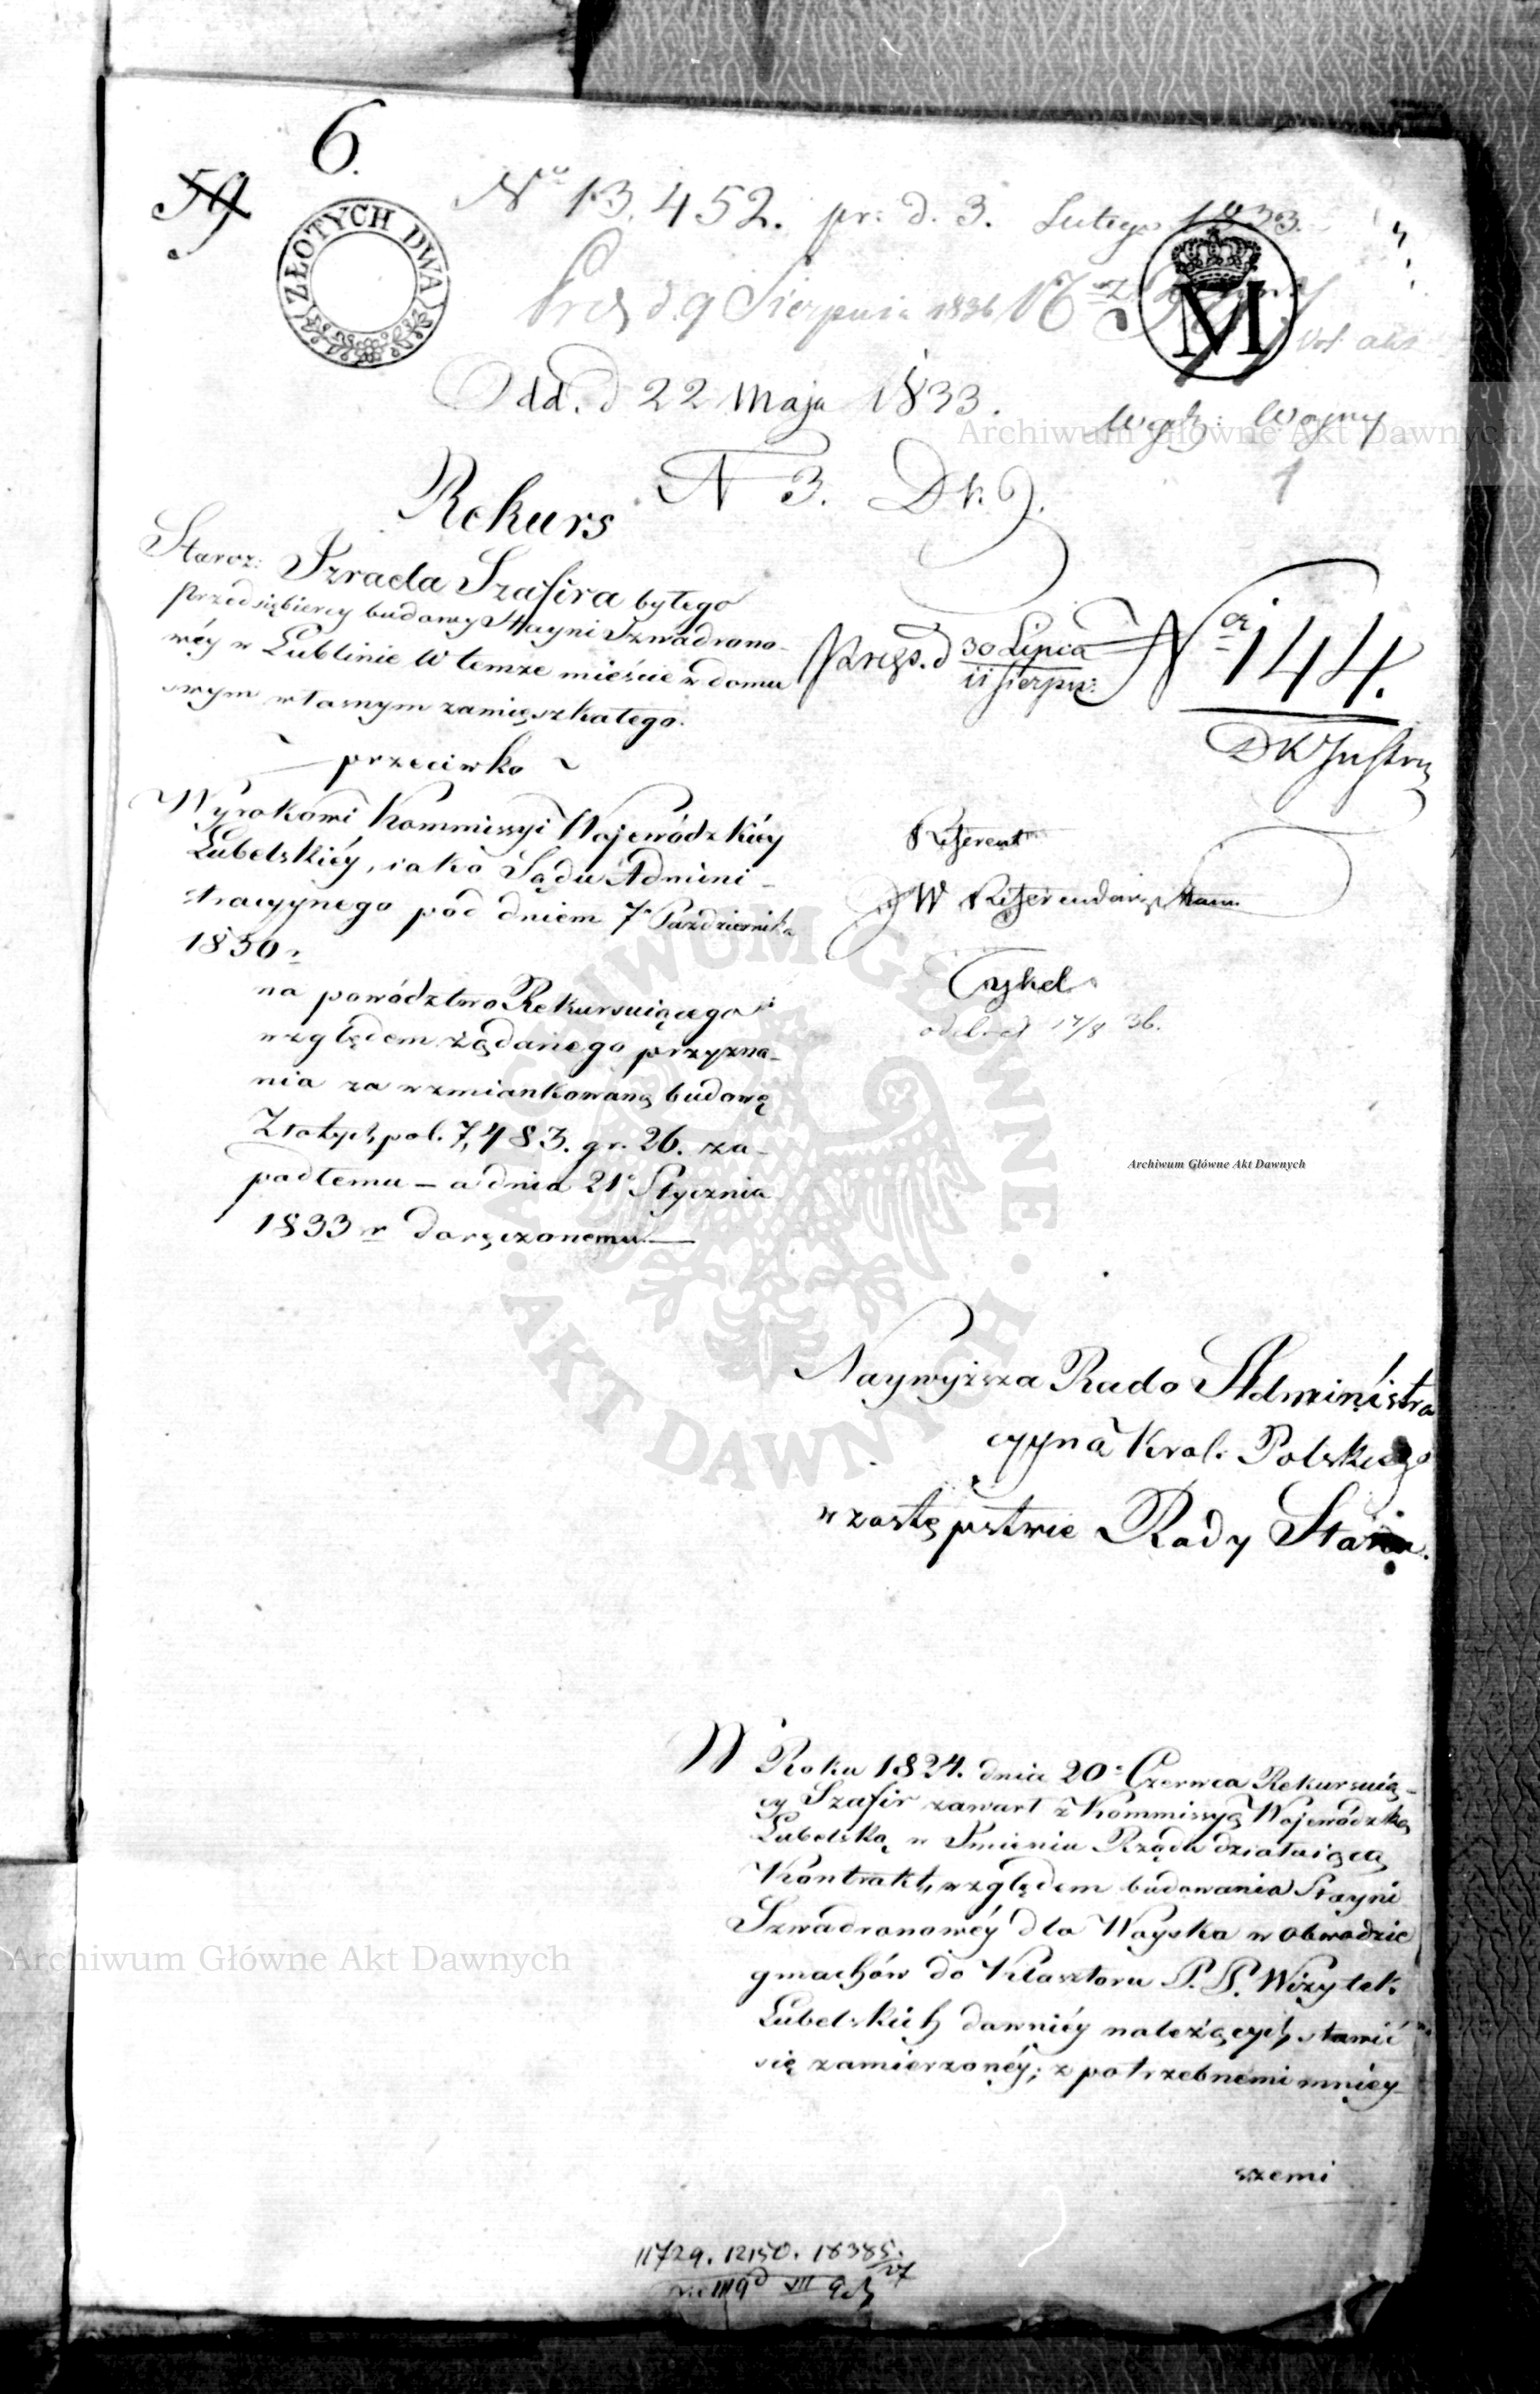 6.
59
ZŁOTYCH DWA
No 13,452. pr: d. 3. Lutego 1833.
M
Prez d. 9 Sierpnia 1836
Odd. d 22 Maja 1833.
Wydz: Woyny
1
N 3. D k.
Rekurs
Staroz: Izraela Szafira byłego
przedsiębiercy budowy Stayni Szwadrono-
wéy w Lublinie w temze mieście w domu
swym własnym zamięszkałego.
przeciwko
Wyrokowi Kommissyi Wojewódzkiéy
Lubelskiéy, iako Sądu Admini-
stracyynego pod dniem 7o Pazdziernika
1830 r.
na powództwo Rekursuiącego
względem żądanego przyzna-
nia za wzmiankowaną budowę
Złotych pol. 7,483. gr. 26. za-
padłemu – a dnia 21o Stycznia
1833 r doręczonemu —
Prezs. d 30 Lipca
11 Sierpn:
Nor 144.
DK Justru
Referent
JW Referendarz Stanu
Cyskel
odebrał 17/8 36.
Archiwum Główne Akt Dawnych
Naywyższa Rado Administra
cyyna Krol: Polskiego
w zastępstwie Rady Stanu.
W Roku 1824. dnia 20o Czerwca Rekursuią-
cy Szafir zawarł z Kommissyą Wojewódzką
Lubelską w Imieniu Rządu działaiącą
Kontrakt, względem budowania Stayni
Szwadronowéy dla Woyska w obwodzie
gmachów do Klasztoru P. P. Wizytek.
Lubelskich dawniéy należących, stawić
się zamierzonéy; z potrzebnemi mniey-
szemi
11729. 12150. 18385.
Archiwum Główne Akt Dawnych
Archiwum Główne Akt Dawnych
ARCHIWUM GŁÓWNE · AKT DAWNYCH ·